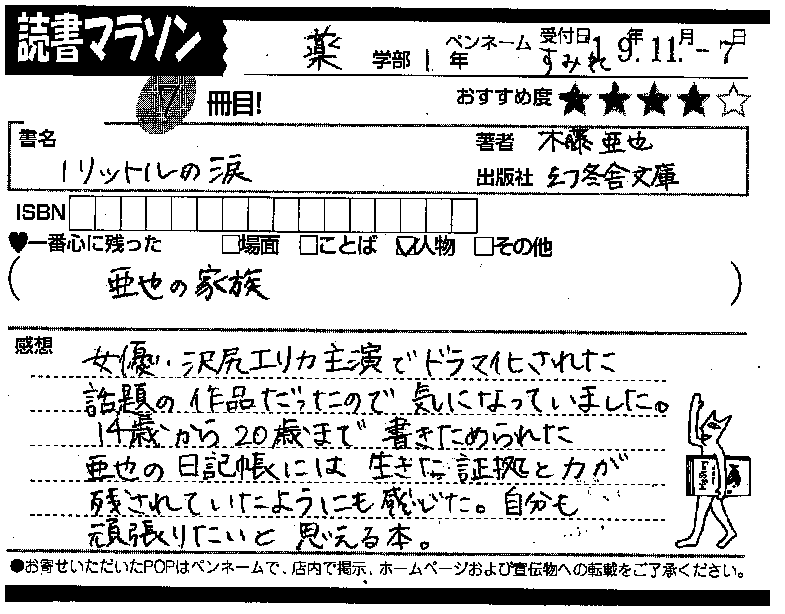 読書マラソン
薬 学部 1 年 ペンネーム すみれ 受付日 19年.11.月-7日
7冊目! おすすめ度 ★★★★☆
書名 1リットルの涙
著者 木藤亜也
出版社 幻冬舎文庫
ISBN
♥一番心に残った □場面 □ことば ☑人物 □その他
( 亜也の家族 )
感想
女優・沢尻エリカ主演でドラマ化された
話題の作品だったので気になっていました。
14歳から20歳まで書きためられた
亜也の日記帳には生きた証拠と力が
残されていたようにも感じた。自分も
頑張りたいと思える本。
●お寄せいただいたPOPはペンネームで、店内で掲示、ホームページおよび宣伝物への転載をご了承ください。